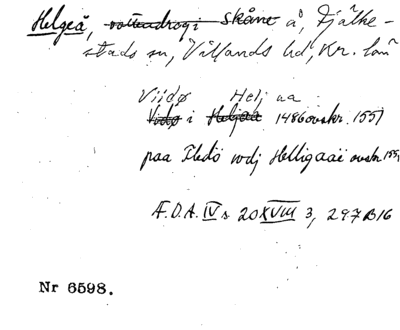 Helgeå, vattendrag i Skåne å, Fjälke-
stads sn, Villands hd, Kr. län
Viidø Helj aa
Vidø i Heljaa 1486 avskr. 1551
paa Fledö vdj Helligaaë avskr 155
Æ.D.A. IV s 20 XVIII 3, 297 B16
Nr 6598.